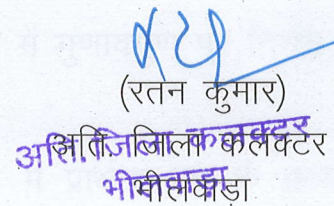 (रतन कुमार)
अति. जिला कलेक्टर
भीलवाड़ा
अति. जिला कलक्टर
भीलवाड़ा